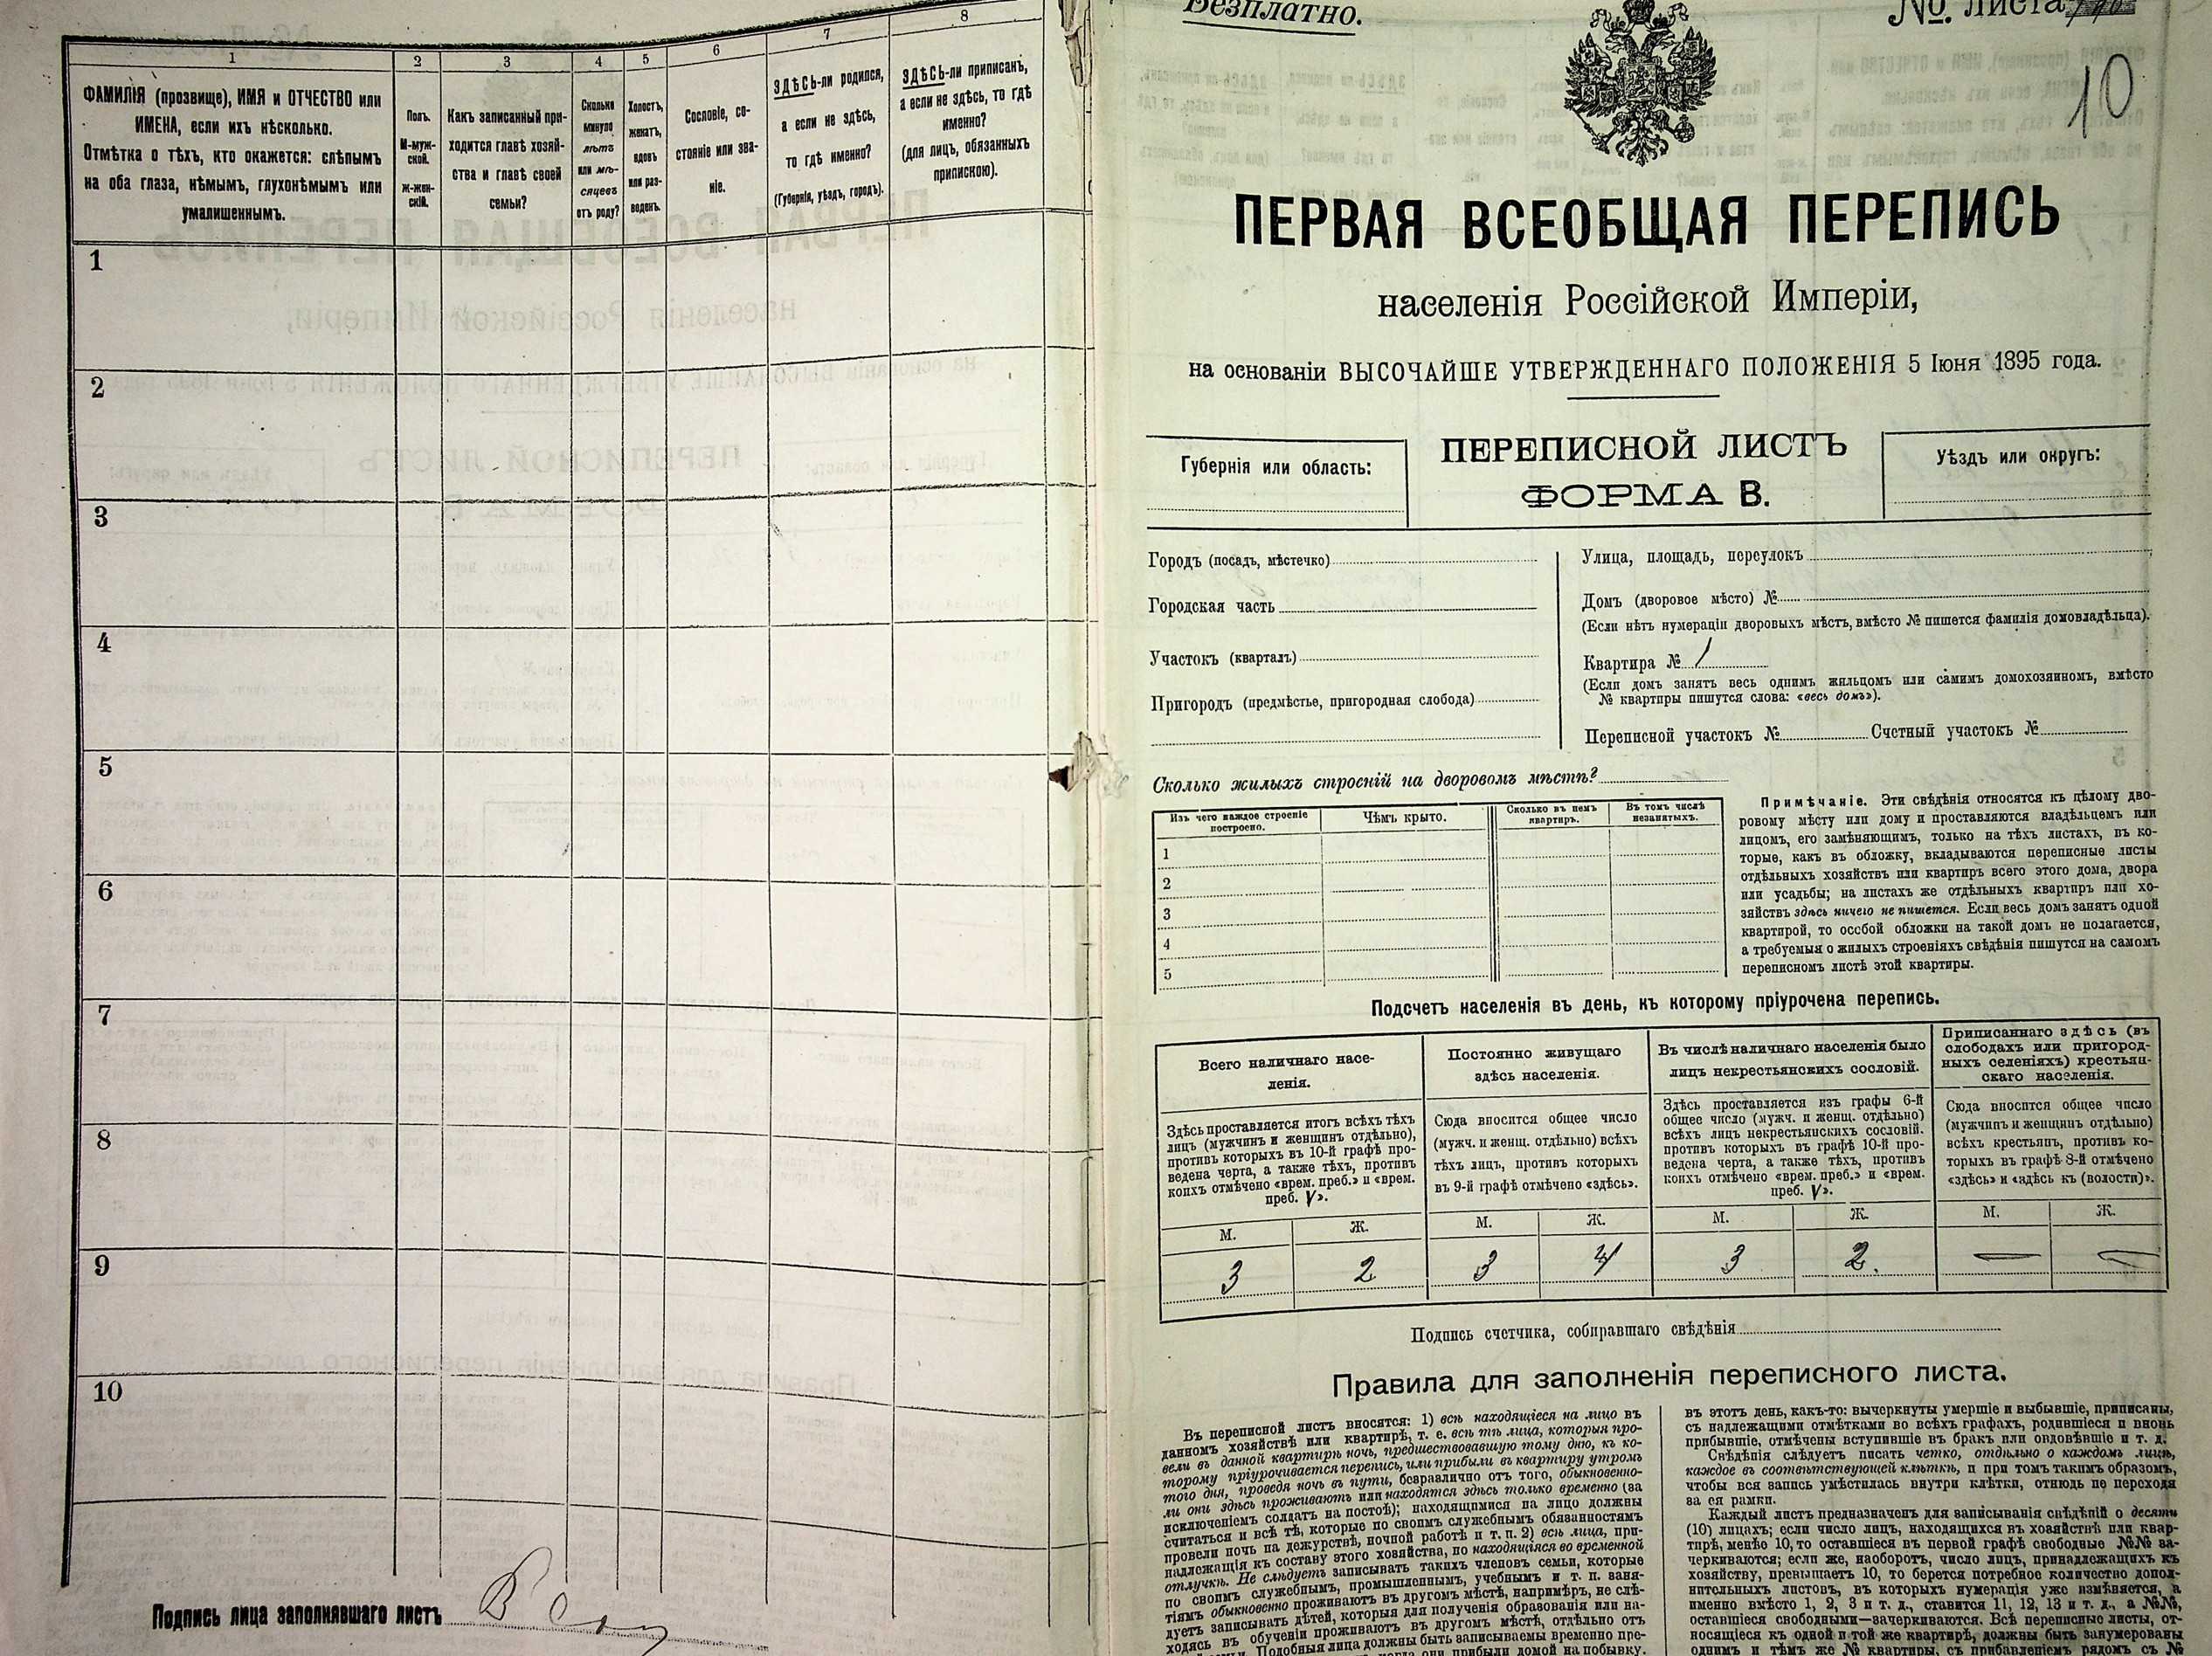 1
2
3
4
5
6
7
8
ФАМИЛІЯ (прозвище), ИМЯ и ОТЧЕСТВО или
ИМЕНА, если ихъ нѣсколько.
Отмѣтка о тѣхъ, кто окажется: слѣпымъ
на оба глаза, нѣмымъ, глухонѣмымъ или
умалишеннымъ.
Полъ.
М-муж-
ской.
Ж-жен-
скій.
Какъ записанный при-
ходится главѣ хозяй-
ства и главѣ своей
семьи?
Сколько
минуло
лѣтъ
или мѣ-
сяцевъ
отъ роду?
Холостъ,
женатъ,
вдовъ
или раз-
веденъ.
Сословіе, со-
стояніе или зва-
ніе.
ЗДѢСЬ-ли родился,
а если не здѣсь,
то гдѣ именно?
(Губернія, уѣздъ, городъ).
ЗДѢСЬ-ли приписанъ,
а если не здѣсь, то гдѣ
именно?
(для лицъ, обязанныхъ
припискою).
1
2
3
4
5
6
7
8
9
10
Подпись лица заполнявшаго листъ
Безплатно.
№. листа
10
ПЕРВАЯ ВСЕОБЩАЯ ПЕРЕПИСЬ
населенія Россійской Имперіи,
на основаніи ВЫСОЧАЙШЕ УТВЕРЖДЕННАГО ПОЛОЖЕНІЯ 5 Іюня 1895 года.
Губернія или область:
ПЕРЕПИСНОЙ ЛИСТЪ
ФОРМА В.
Уѣздъ или округъ:
Городъ (посадъ, мѣстечко)
Городская часть
Участокъ (кварталъ)
Пригородъ (предмѣстье, пригородная слобода)
Улица, площадь, переулокъ
Домъ (дворовое мѣсто) №
(Если нѣтъ нумераціи дворовыхъ мѣстъ, вмѣсто № пишется фамилія домовладѣльца).
Квартира № 1
(Если домъ занятъ весь однимъ жильцомъ или самимъ домохозяиномъ, вмѣсто
№ квартиры пишутся слова: «весь домъ»).
Переписной участокъ № Счетный участокъ №
Сколько жилыхъ строеній на дворовомъ мѣстѣ?
Изъ чего каждое строеніе
построено.
Чѣмъ крыто.
Сколько въ немъ
квартиръ.
Въ томъ числѣ
незанятыхъ.
1
2
3
4
5
Примѣчаніе. Эти свѣдѣнія относятся къ цѣлому дво-
ровому мѣсту или дому и проставляются владѣльцемъ или
лицомъ, его замѣняющимъ, только на тѣхъ листахъ, въ ко-
торые, какъ въ обложку, вкладываются переписные листы
отдѣльныхъ хозяйствъ или квартиръ всего этого дома, двора
или усадьбы; на листахъ же отдѣльныхъ квартиръ или хо-
зяйствъ здѣсь ничего не пишется. Если весь домъ занятъ одной
квартирой, то особой обложки на такой домъ не полагается,
а требуемыя о жилыхъ строеніяхъ свѣдѣнія пишутся на самомъ
переписномъ листѣ этой квартиры.
Подсчетъ населенія въ день, къ которому пріурочена перепись.
Всего наличнаго насе-
ленія.
Здѣсь проставляется итогъ всѣхъ тѣхъ
лицъ (мужчинъ и женщинъ отдѣльно),
противъ которыхъ въ 10-й графѣ про-
ведена черта, а также тѣхъ, противъ
коихъ отмѣчено «врем. преб.» и «врем.
преб. V».
Постоянно живущаго
здѣсь населенія.
Сюда вносится общее число
(мужч. и женщ. отдѣльно) всѣхъ
тѣхъ лицъ, противъ которыхъ
въ 9-й графѣ отмѣчено «здѣсь».
Въ числѣ наличнаго населенія было
лицъ некрестьянскихъ сословій.
Здѣсь проставляется изъ графы 6-й
общее число (мужч. и женщ. отдѣльно)
всѣхъ лицъ некрестьянскихъ сословій.
противъ которыхъ въ графѣ 10-й про-
ведена черта, а также тѣхъ, противъ
коихъ отмѣчено «врем. преб.» и «врем.
преб. V».
Приписаннаго здѣсь (въ
слободахъ или пригород-
ныхъ селеніяхъ) крестьян-
скаго населенія.
Сюда вносится общее число
(мужчинъ и женщинъ отдѣльно)
всѣхъ крестьянъ, противъ ко-
торыхъ въ графѣ 8-й отмѣчено
«здѣсь» и «здѣсь къ (волости)».
М. Ж. М. Ж. М. Ж. М. Ж.
3 2 3 4 3 2. — —
Подпись счетчика, собиравшаго свѣдѣнія
Правила для заполненія переписного листа.
Въ переписной листъ вносятся: 1) всѣ находящіеся на лицо въ
данномъ хозяйствѣ или квартирѣ, т. е. всѣ тѣ лица, которыя про-
вели въ данной квартирѣ ночь, предшествовавшую тому дню, къ ко-
торому пріурочивается перепись, или прибыли въ квартиру утромъ
того дня, проведя ночь въ пути, безразлично отъ того, обыкновенно-
ли они здѣсь проживаютъ или находятся здѣсь только временно (за
исключеніемъ солдатъ на постоѣ); находящимися на лицо должны
считаться и всѣ тѣ, которые по своимъ служебнымъ обязанностямъ
провели ночь на дежурствѣ, ночной работѣ и т. п. 2) всѣ лица, при-
надлежащія къ составу этого хозяйства, но находящіяся во временной
отлучкѣ. Не слѣдуетъ записывать такихъ членовъ семьи, которые
по своимъ служебнымъ, промышленнымъ, учебнымъ и т. п. заня-
тіямъ обыкновенно проживаютъ въ другомъ мѣстѣ, напримѣръ, не слѣ-
дуетъ записывать дѣтей, которыя для полученія образованія или на-
ходясь въ обученіи проживаютъ въ другомъ мѣстѣ, отдѣльно отъ
семьи. Подобныя лица должны быть записываемы временно пре-
когда они прибыли домой на побывку.
въ этотъ день, какъ-то: вычеркнуты умершіе и выбывшіе, приписаны,
съ надлежащими отмѣтками во всѣхъ графахъ, родившіеся и вновь
прибывшіе, отмѣчены вступившіе въ бракъ или овдовѣвшіе и т. д.
Свѣдѣнія слѣдуетъ писать четко, отдѣльно о каждомъ лицѣ,
каждое въ соотвѣтствующей клѣткѣ, и при томъ такимъ образомъ,
чтобы вся запись умѣстилась внутри клѣтки, отнюдь не переходя
за ея рамки.
Каждый листъ предназначенъ для записыванія свѣдѣній о десяти
(10) лицахъ; если число лицъ, находящихся въ хозяйствѣ или квар-
тирѣ, менѣе 10, то оставшіеся въ первой графѣ свободные №№ за-
черкиваются; если же, наоборотъ, число лицъ, принадлежащихъ къ
хозяйству, превышаетъ 10, то берется потребное количество допол-
нительныхъ листовъ, въ которыхъ нумерація уже измѣняется, а
именно вмѣсто 1, 2, 3 и т. д., ставится 11, 12, 13 и т. д., а №№,
оставшіеся свободными—зачеркиваются. Всѣ переписные листы, от-
носящіеся къ одной и той же квартирѣ, должны быть занумерованы
однимъ и тѣмъ же № квартиры, съ прибавленіемъ рядомъ съ №